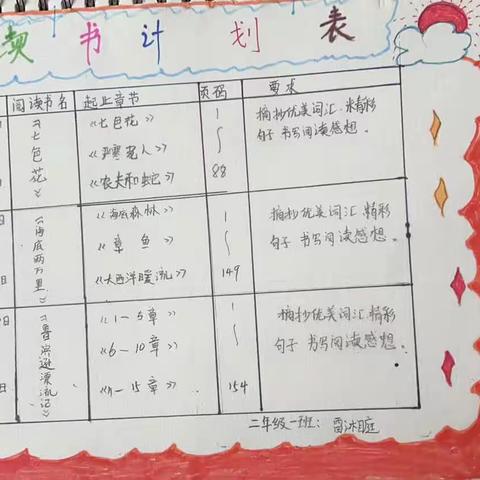 读书计划表
阅读书名 起止章节 页码 要求
日
《七色花》
《七色花》
《严寒老人》
《农夫和蛇》
1
~
88
摘抄优美词汇.精彩
句子 书写阅读感想。
日
日
《海底两万里》
《海底森林》
《章鱼》
《大西洋暖流》
1
~
149
摘抄优美词汇.精彩
句子 书写阅读感想。
日
日
《鲁滨逊漂流记》
《1-5章》
《6-10章》
《11-15章》
1
~
154
摘抄优美词汇.精彩
句子 书写阅读感想。
二年级一班：雷沐庭